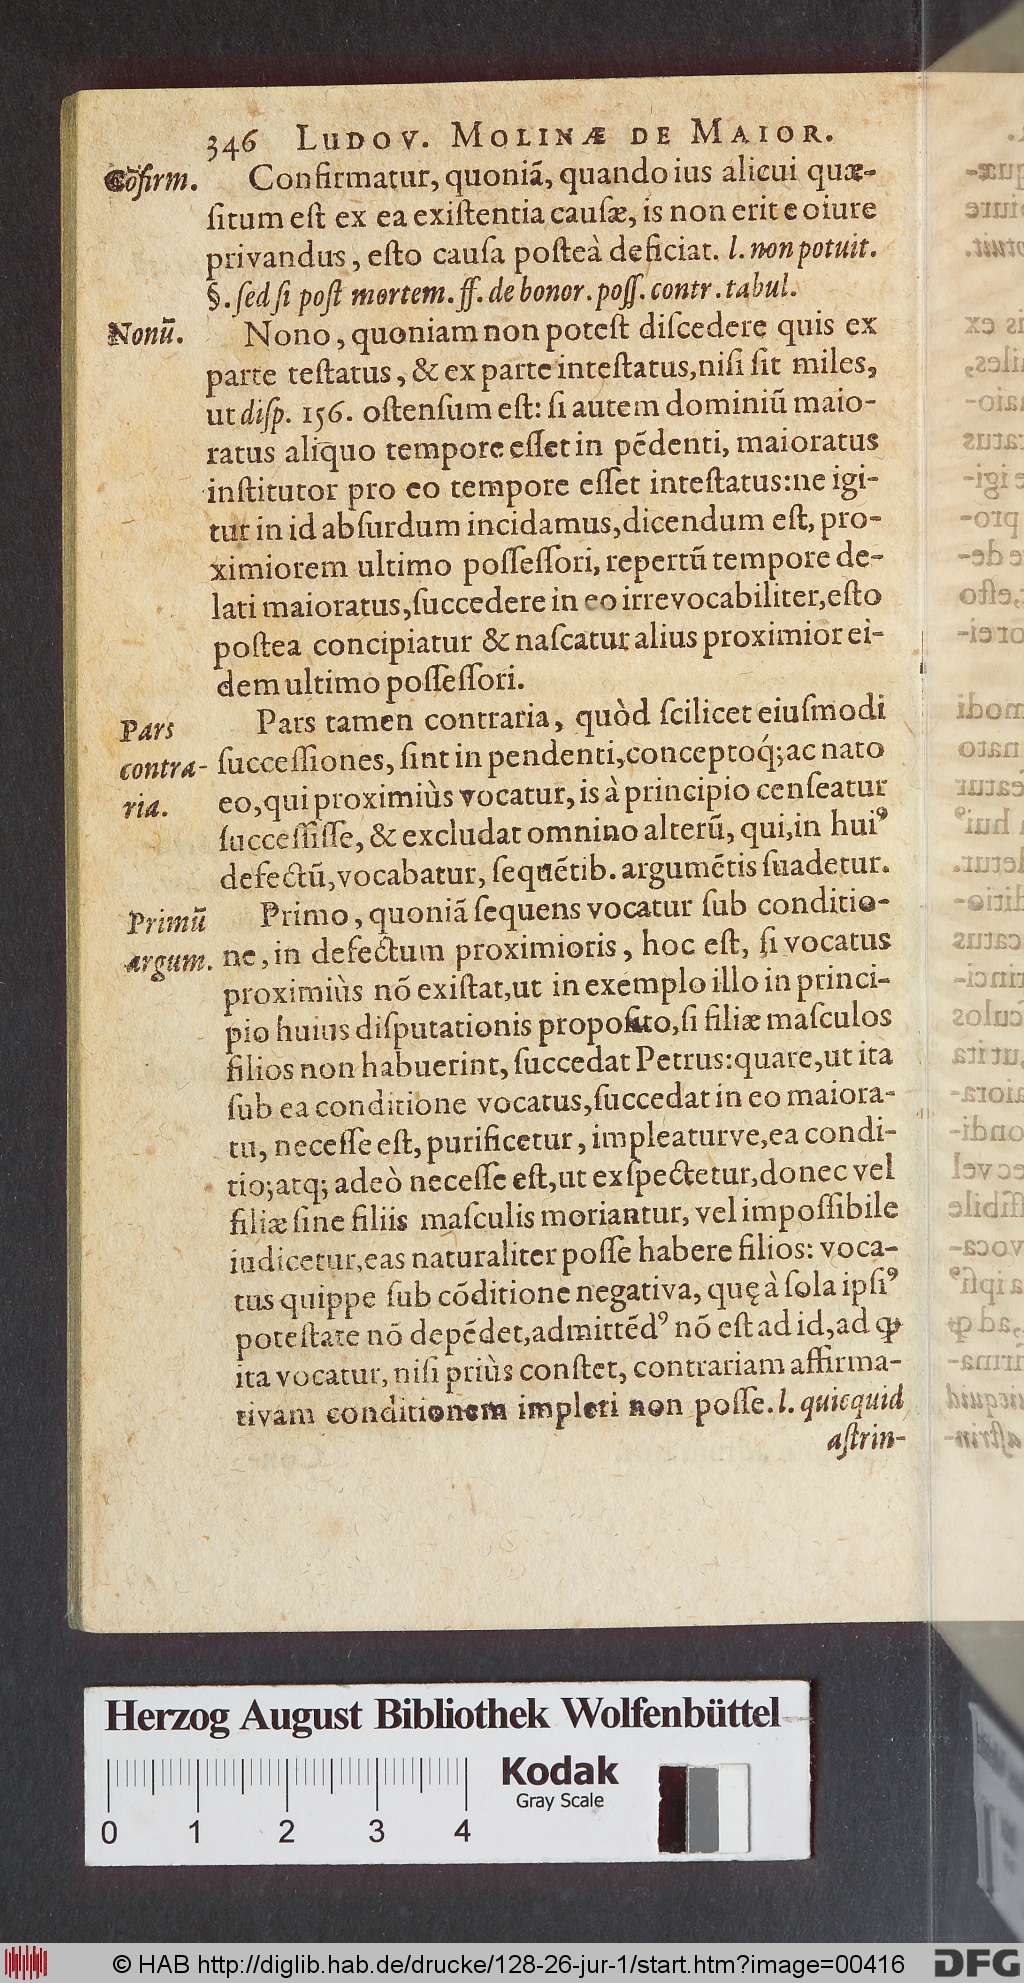 346 LUDOV. MOLINÆ DE MAIOR.
Cõfirm. Confirmatur, quoniã, quando ius alicui quæ-
ſitum eſt ex ea exiſtentia cauſæ, is non erit eo iure
privandus, eſto cauſa poſteà deficiat. l. non potuit.
§. ſed ſi poſt mortem. ff. de bonor. poſſ. contr. tabul.
Nonũ. Nono, quoniam non poteſt diſcedere quis ex
parte teſtatus, & ex parte inteſtatus, niſi ſit miles,
ut diſp. 156. oſtenſum eſt: ſi autem dominiũ maio-
ratus aliquo tempore eſſet in pẽdenti, maioratus
inſtitutor pro eo tempore eſſet inteſtatus: ne igi-
tur in id abſurdum incidamus, dicendum eſt, pro-
ximiorem ultimo poſſeſſori, repertũ tempore de-
lati maioratus, ſuccedere in eo irrevocabiliter, eſto
poſtea concipiatur & naſcatur alius proximior ei-
dem ultimo poſſeſſori.
Pars Pars tamen contraria, quòd ſcilicet eiuſmodi
contra- ſucceſſiones, ſint in pendenti, conceptoq́; ac nato
ria. eo, qui proximiùs vocatur, is à principio cenſeatur
ſucceſſiſſe, & excludat omnino alterũ, qui, in huiꝰ
defectũ, vocabatur, ſequẽtib. argumẽtis ſuadetur.
Primũ Primo, quoniã ſequens vocatur ſub conditio-
argum. ne, in defectum proximioris, hoc eſt, ſi vocatus
proximiùs nõ exiſtat, ut in exemplo illo in princi-
pio huius diſputationis propoſito, ſi filiæ maſculos
filios non habuerint, ſuccedat Petrus: quare, ut ita
ſub ea conditione vocatus, ſuccedat in eo maiora-
tu, neceſſe eſt, purificetur, impleaturve, ea condi-
tio; atq; adeò neceſſe eſt, ut exſpectetur, donec vel
filiæ ſine filiis maſculis moriantur, vel impoſſibile
iudicetur, eas naturaliter poſſe habere filios: voca-
tus quippe ſub cõditione negativa, quę à ſola ipſiꝰ
poteſtate nõ depẽdet, admittẽdꝰ nõ eſt ad id, ad ꝙ
ita vocatur, niſi priùs conſtet, contrariam affirma-
tivam conditionem impleri non poſſe. l. quicquid
aſtrin-
Herzog August Bibliothek Wolfenbüttel
Kodak
Gray Scale
0 1 2 3 4
© HAB http://diglib.hab.de/drucke/128-26-jur-1/start.htm?image=00416
DFG